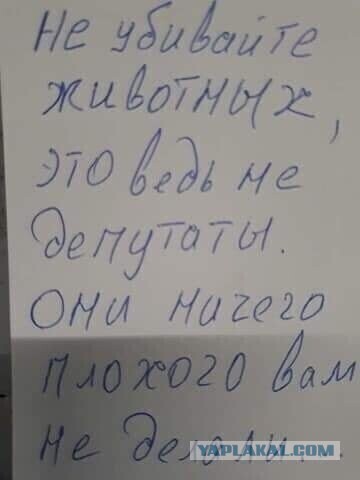 Не убивайте
животных,
это ведь не
депутаты.
Они ничего
плохого вам
не делали.
YAPLAKAL.COM